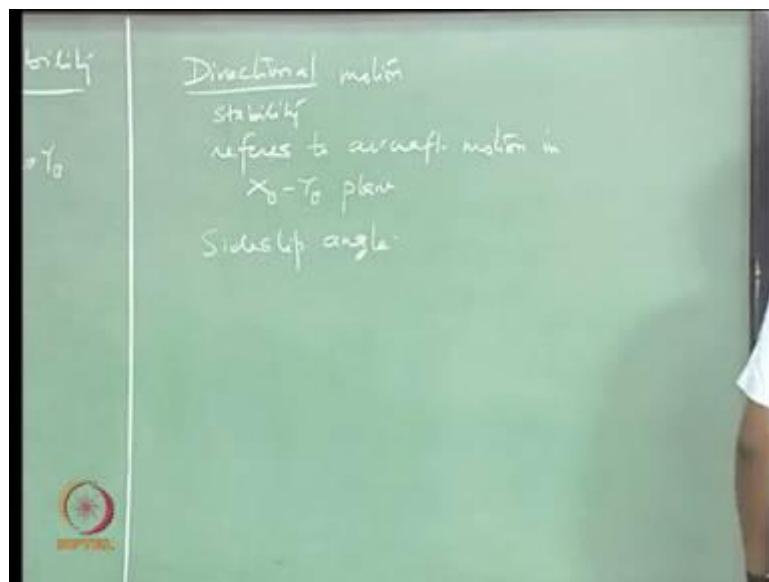 bility
Y₀
Directional motion
stability
referes to aircraft motion in
X₀-Y₀ plane
Sideslip angle
NPTEL